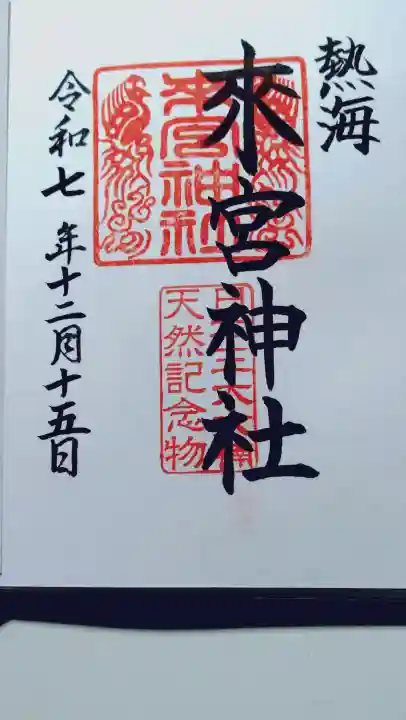 熱海
來宮神社
天然記念物
令和七年十二月十五日